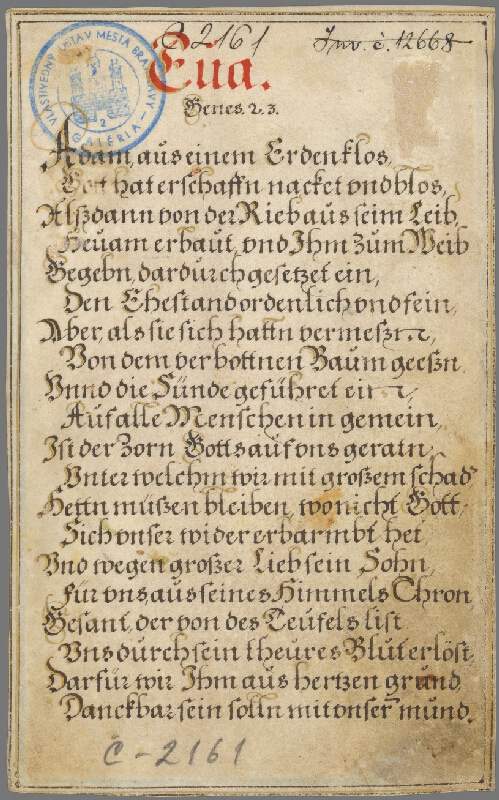 C 2161
Inv. č. 12668
VLASTIVEDNÝ ÚSTAV MESTA BRATISLAVY
2
GALÉRIA
Eua.
Genes. 2. 3.
Adam aus einem Erdenklos,
Gott hat erschaffn nacket vnd blos,
Alßdann von der Rieb aus seim Leib,
Heuam erbaut, vnd Ihm zum Weib
Gegebn, dardurch gesetzet ein,
Den Ehestand ordenlich vnd fein,
Aber, als sie sich hattn vermeßn,
Von dem verbottnen Baum geeßn,
Vnnd die Sünde geführet ein,
Auf alle Menschen in gemein,
Ist der Zorn Gotts auf vns geratn,
Vnter welchm wir mit großem schad
Hettn müßen bleiben, wo nicht Gott,
Sich vnser wider erbarmbt het,
Vnd wegen großer Lieb sein Sohn,
Für vns aus seines Himmels Thron
Gesant, der von des Teufels list
Vns durch sein theures Blut erlöst,
Darfür wir Ihm aus hertzen grund,
Danckbar sein solln mit vnserm mund.
C-2161